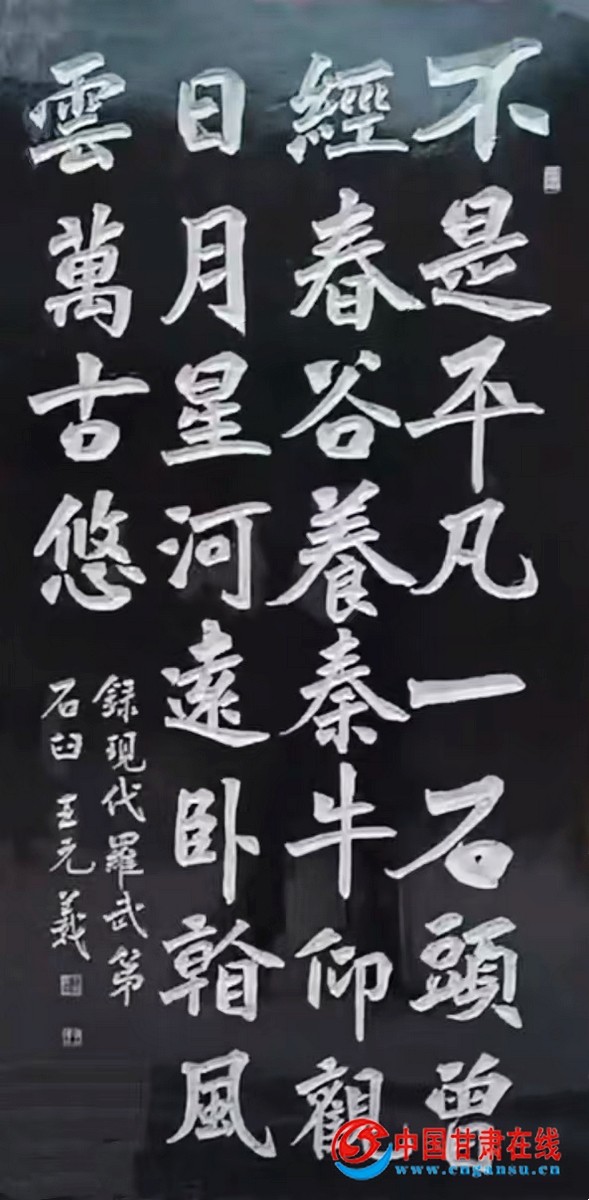 不是平凡一石頭曾
經春谷養秦牛仰觀
日月星河遠卧風
雲萬古悠
錄現代羅武第
石臼 王元義
中国甘肃在线
www.cngansu.cn